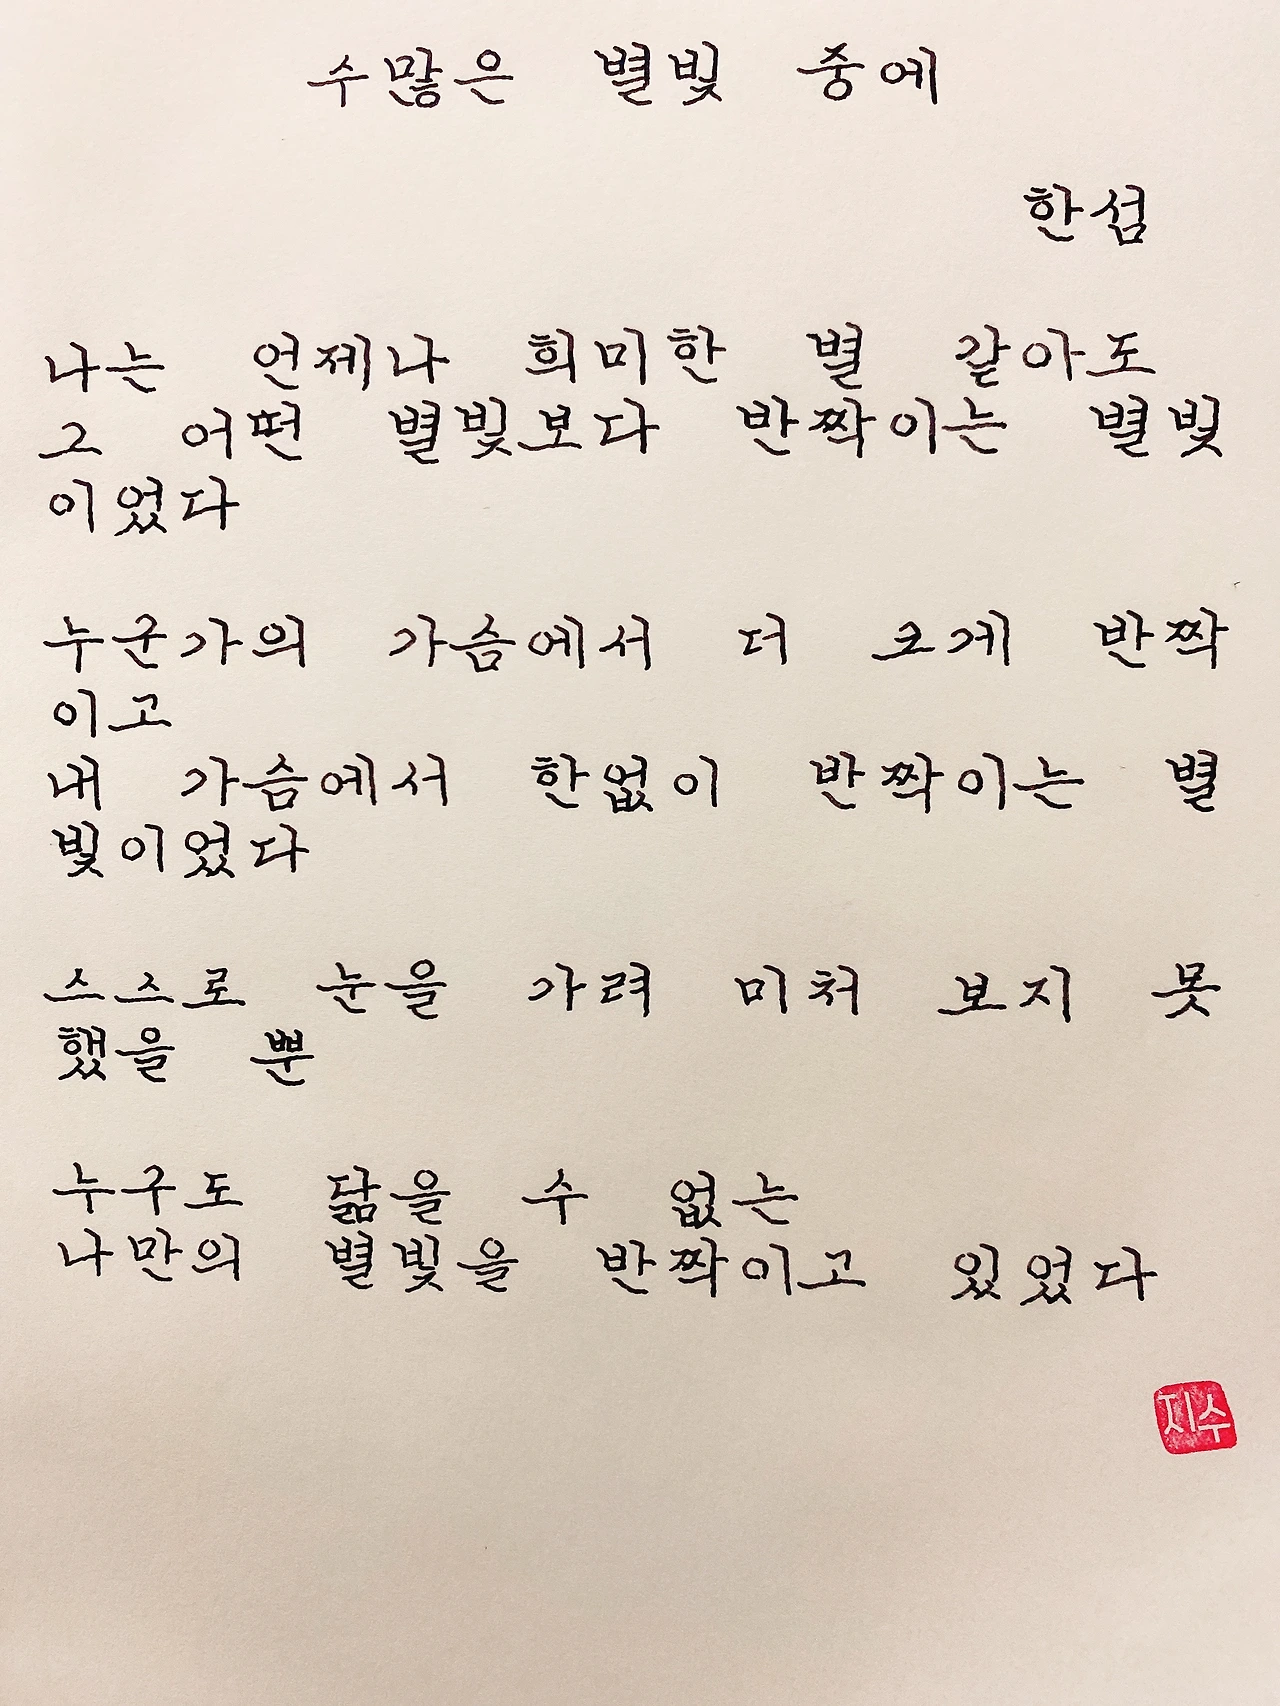 수많은 별빛 중에
한섬
나는 언제나 희미한 별 같아도
그 어떤 별빛보다 반짝이는 별빛
이었다
누군가의 가슴에서 더 크게 반짝
이고
내 가슴에서 한없이 반짝이는 별
빛이었다
스스로 눈을 가려 미처 보지 못
했을 뿐
누구도 닮을 수 없는
나만의 별빛을 반짝이고 있었다
지수